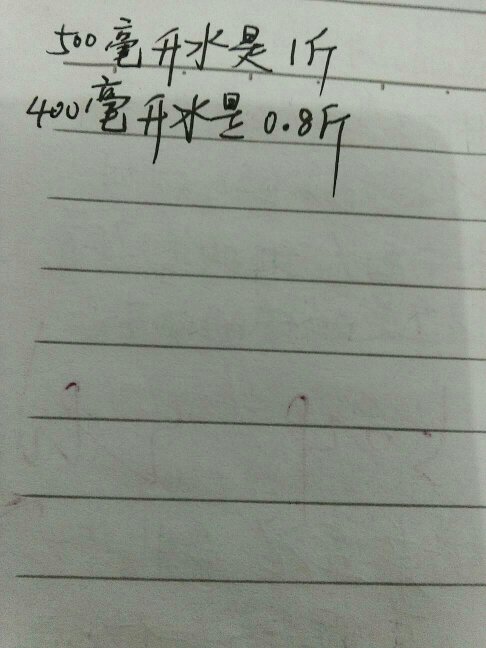 500毫升水是1斤
400毫升水是0.8斤